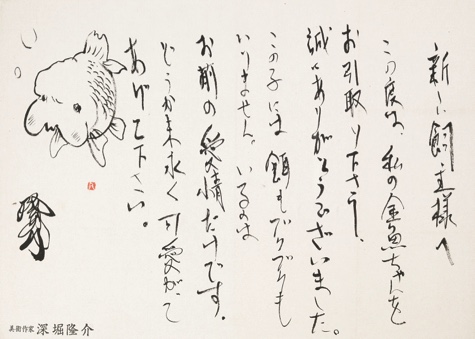 新しい飼主様へ
この度は、私の金魚ちゃんを
お引取り下さり、
誠にありがとうございました。
この子には餌もブクブクも
いりません。いるのは
お前の愛情だけです。
どうか末永く可愛がって
あげて下さい。
美術作家 深堀隆介